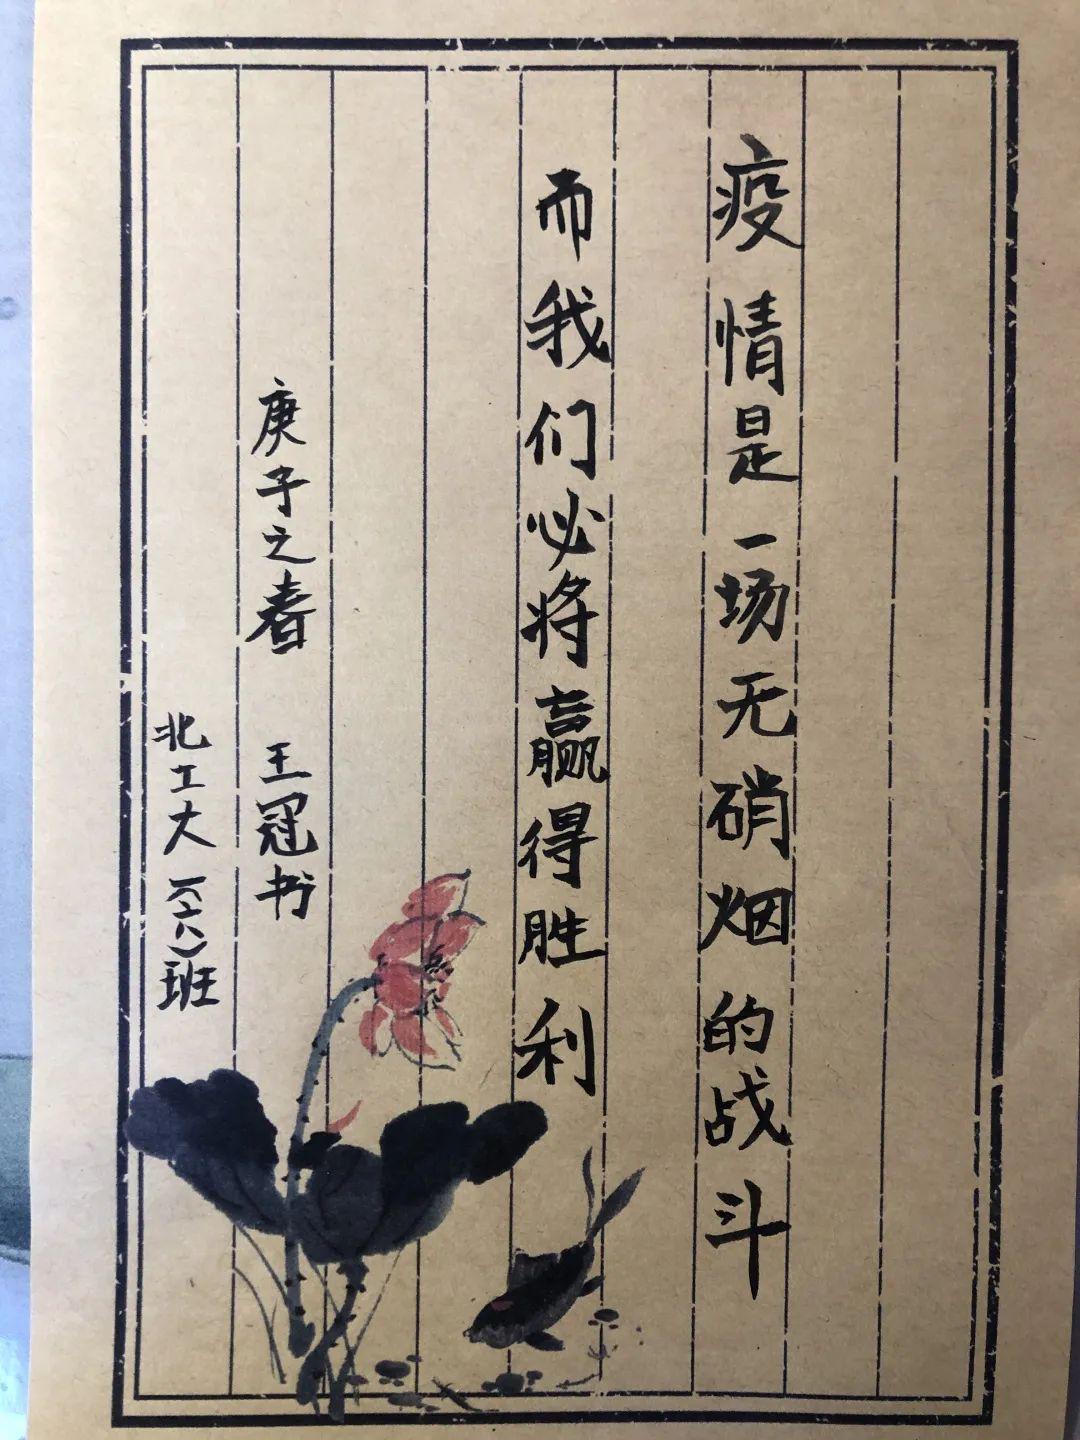 疫情是一场无硝烟的战斗
而我们必将赢得胜利
庚子之春 王冠书
北工大一(六)班